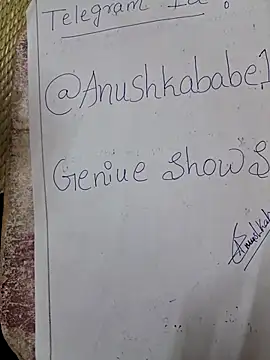 Telegram Id :
@Anushkababe1
Geniue Show S
Anushka